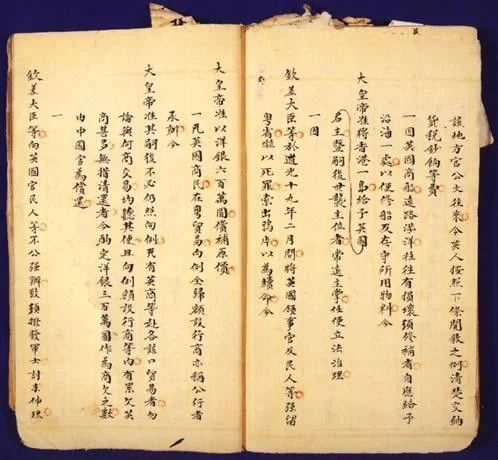 該地方官公文往來令英人按照下條開叙之例清楚交納
貨稅鈔餉等費
一因英國商船遠路涉洋往往有損壞須修補者自應給予
沿海一處以便修船及存守所用物料今
大皇帝准將香港一島給予英國
君主暨嗣後世襲主位者常遠主掌任便立法治理
一因
欽差大臣等於道光十九年二月間將英國領事官及民人等強留
粵省嚇以死罪索出鴉片以為贖命今
大皇帝准以洋銀六百萬圓償補原價
一凡英國商民在粵貿易向例全歸額設行商亦稱公行者
承辦今
大皇帝准其嗣後不必仍照向例凡有英商等赴各該口貿易者勿
論與何商交易均聽其便且向例額設行商等內有累欠英
商甚多無措清還者今酌定洋銀三百萬圓作為商欠之數
由中國官為償還
一
欽差大臣等向英國官民人等不公強辦致須撥發軍士討求伸理